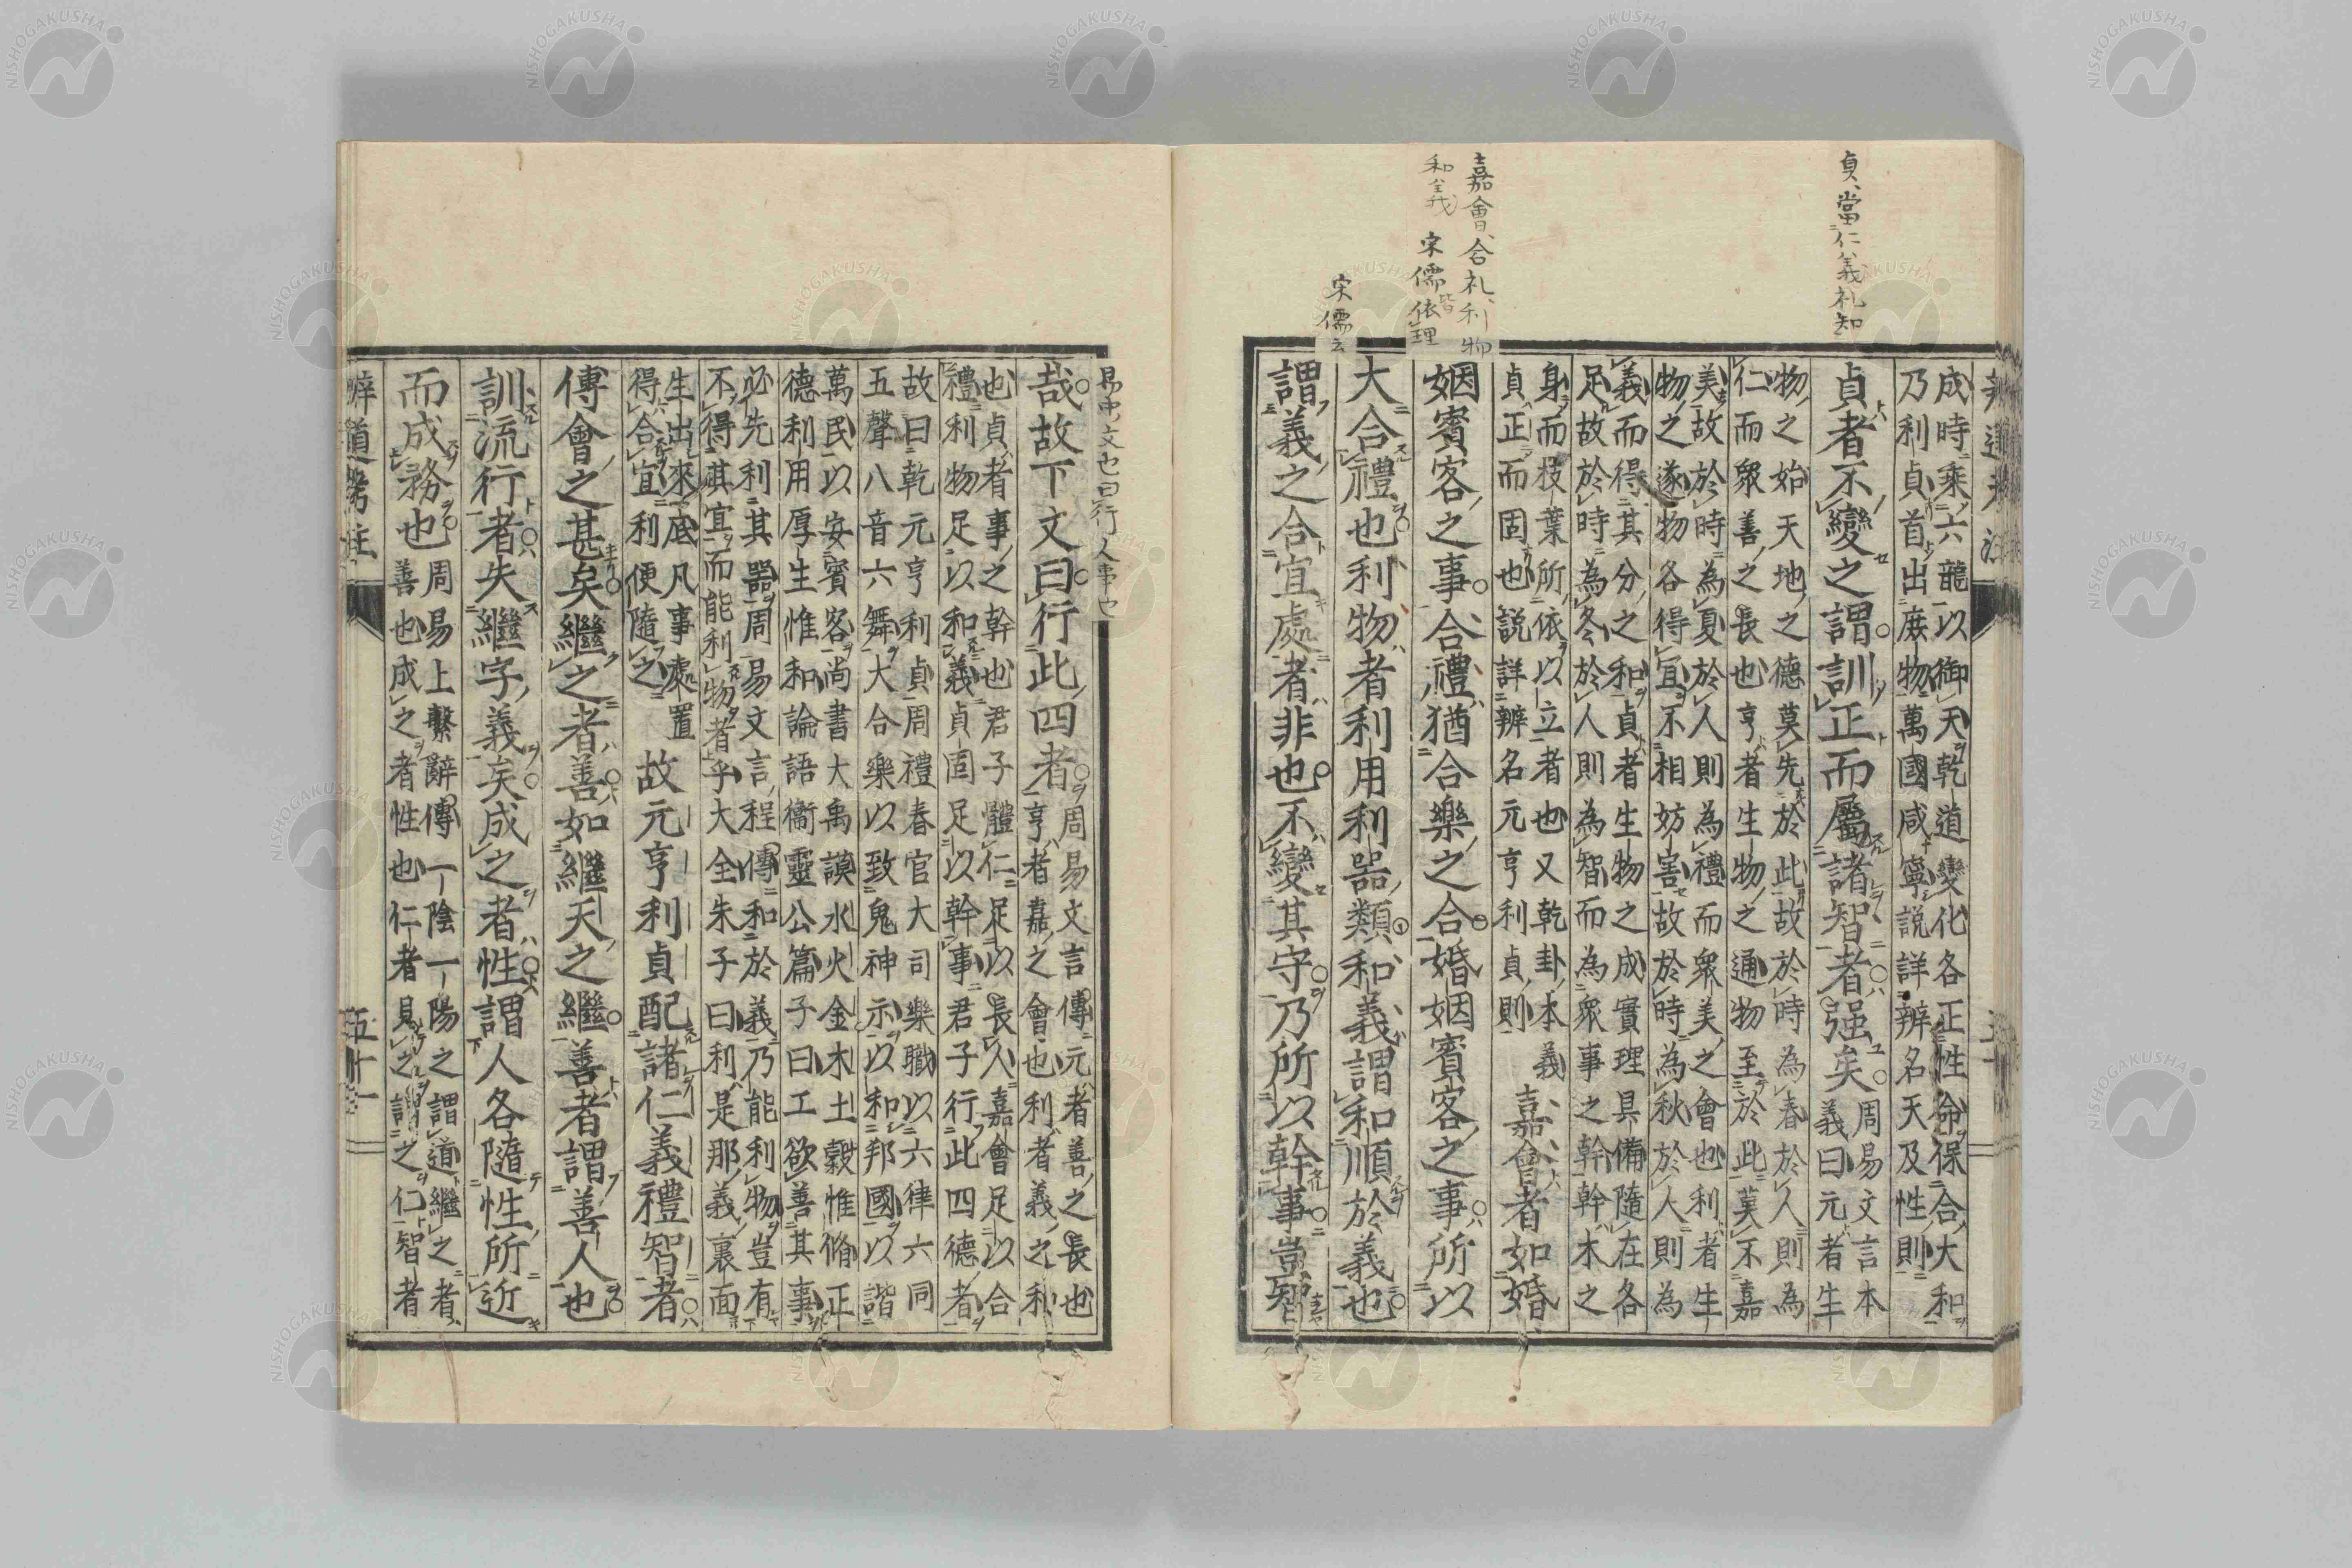 貞當仁義礼知
嘉會合礼利物
和義 宋儒皆依理
宋儒云
成時乘六龍以御天乾道變化各正性命保合大和
乃利貞首出庶物萬國咸寧説詳辨名天及性則
貞者不變之謂訓正而屬諸智者强矣
周易文言本
義曰元者生
物之始天地之德莫先於此故於時為春於人則為
仁而衆善之長也亨者生物之通物至於此莫不嘉
美故於時為夏於人則為禮而衆美之會也利者生
物之遂物各得宜不相妨害故於時為秋於人則為
義而得其分之和貞者生物之成實理具備隨在各
足故於時為冬於人則為智而為衆事之幹幹木之
身而枝葉所依以立者也又乾卦本義
貞正而固也説詳辨名元亨利貞則
嘉會者如婚
姻賓客之事合禮猶合樂之合婚姻賓客之事所以
大合禮也利物者利用利器類和義謂和順於義也
謂義之合宜處者非也不變其守乃所以幹事豈智
易中文也曰行人事也
哉故下文曰行此四者
周易文言傳元者善之長也
亨者嘉之會也利者義之和
也貞者事之幹也君子體仁足以長人嘉會足以合
禮利物足以和義貞固足以幹事君子行此四德者
故曰乾元亨利貞周禮春官大司樂職以六律六同
五聲八音六舞大合樂以致鬼神示以和邦國以諧
萬民以安賓客尚書大禹謨水火金木土穀惟脩正
德利用厚生惟和論語衞靈公篇子曰工欲善其事
必先利其器周易文言程傳和於義乃能利物豈有
不得其宜而能利物者乎大全朱子曰利是那義裏面
生出來底凡事處置
得合宜利便隨之
故元亨利貞配諸仁義禮智者
傅會之甚矣繼之者善如繼天之繼善者謂善人也
訓流行者失繼字義矣成之者性謂人各隨性所近
而成務也
周易上繫辭傳一陰一陽之謂道繼之者
善也成之者性也仁者見之謂之仁智者
辨道考註
五十一